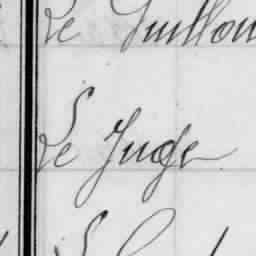 Le Guillou
Le Juge